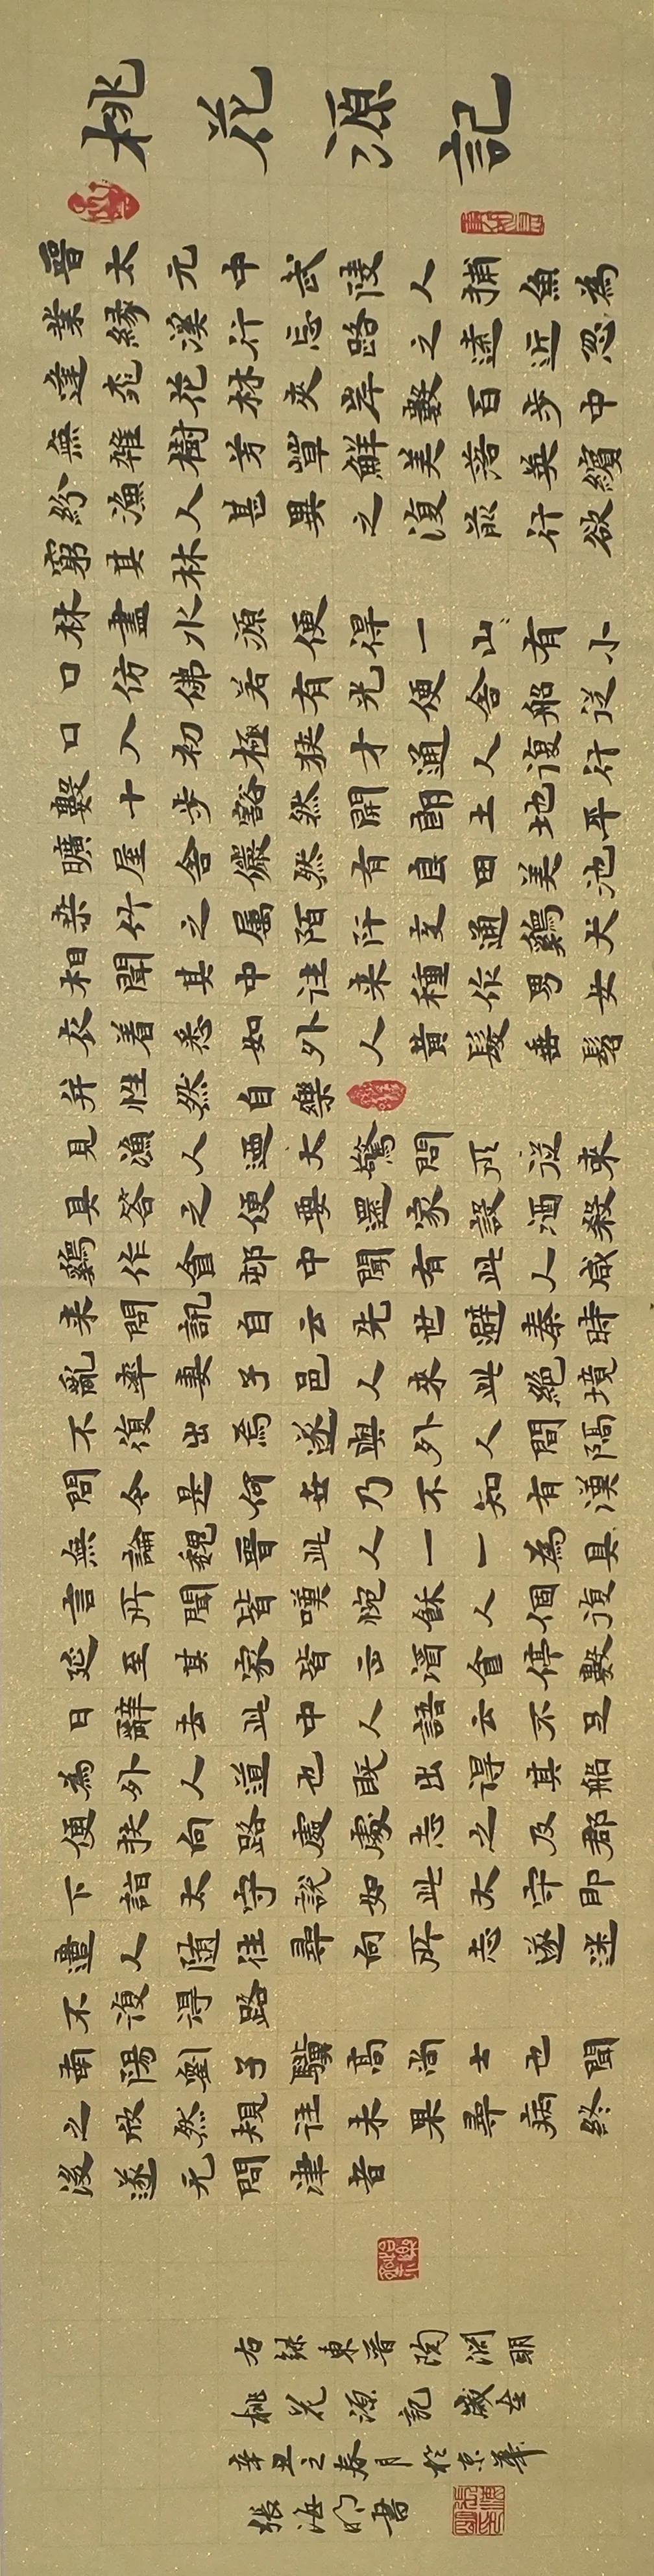 桃花源記
晉太元中武陵人捕魚為
業緣溪行忘路之遠近忽
逢桃花林夾岸數百步中
無雜樹芳草鮮美落英繽
紛漁人甚異之復前行欲
窮其林
林盡水源便得一山有小
口仿佛若有光便舍船從
口入初極狹才通人復行
數十步豁然開朗土地平
曠屋舍儼然有良田美池
桑竹之屬阡陌交通鷄犬
相聞其中往來種作男女
衣着悉如外人黃髮垂髫
并怡然自樂
見漁人迺大驚問所從來
具答之便要還家設酒殺
鷄作食邨中聞有此人咸
来問訊自云先世避秦時
亂率妻子邑人來此絕境
不復出焉遂與外人間隔
問今是何世乃不知有漢
無論魏晉此人一一為具
言所聞皆嘆惋餘人個復
延至其家皆出酒食停數
日辭去此中人語云不足
為外人道也既出得其船
便扶向路處處志之及郡
下詣太守說如此太守即
遣人随往尋向所志遂迷
不復得路
南陽劉子驥高尚士也聞
之欣然規往未果尋病終
後遂无問津者
右錄東晉陶淵明
桃花源記歲在
辛丑之春月於京華
張海明書